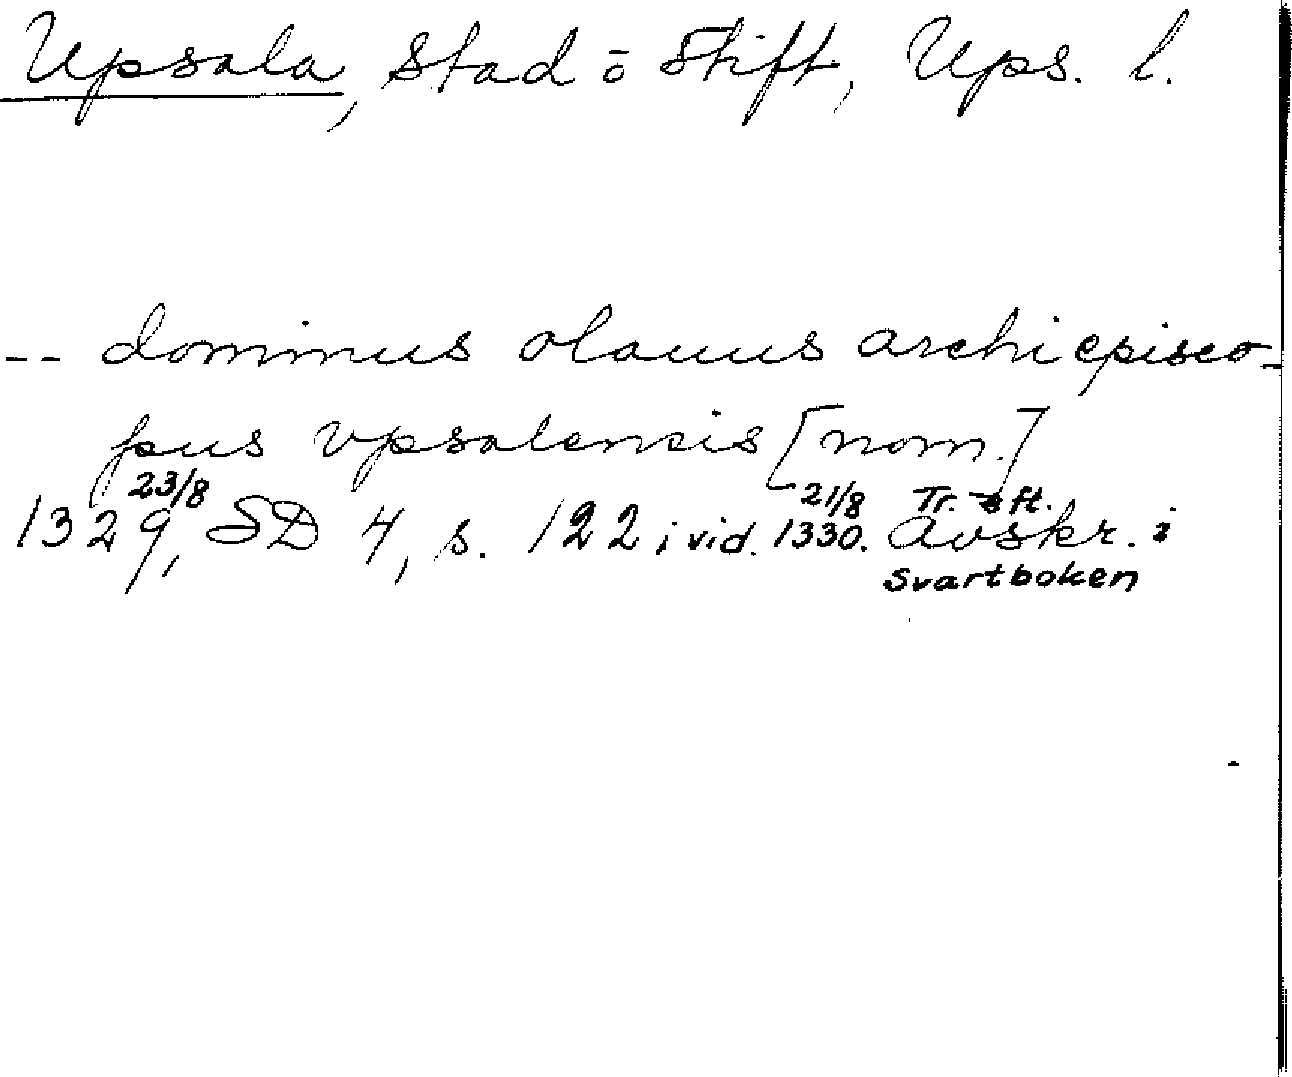 Upsala, Stad ō Stift, Ups. l.
-- dominus olauus archiepisco-
pus vpsalensis [nom.]
23/8 21/8 Tr. eft.
1329, SD 4, s. 122 i vid. 1330. Avskr. i
Svartboken